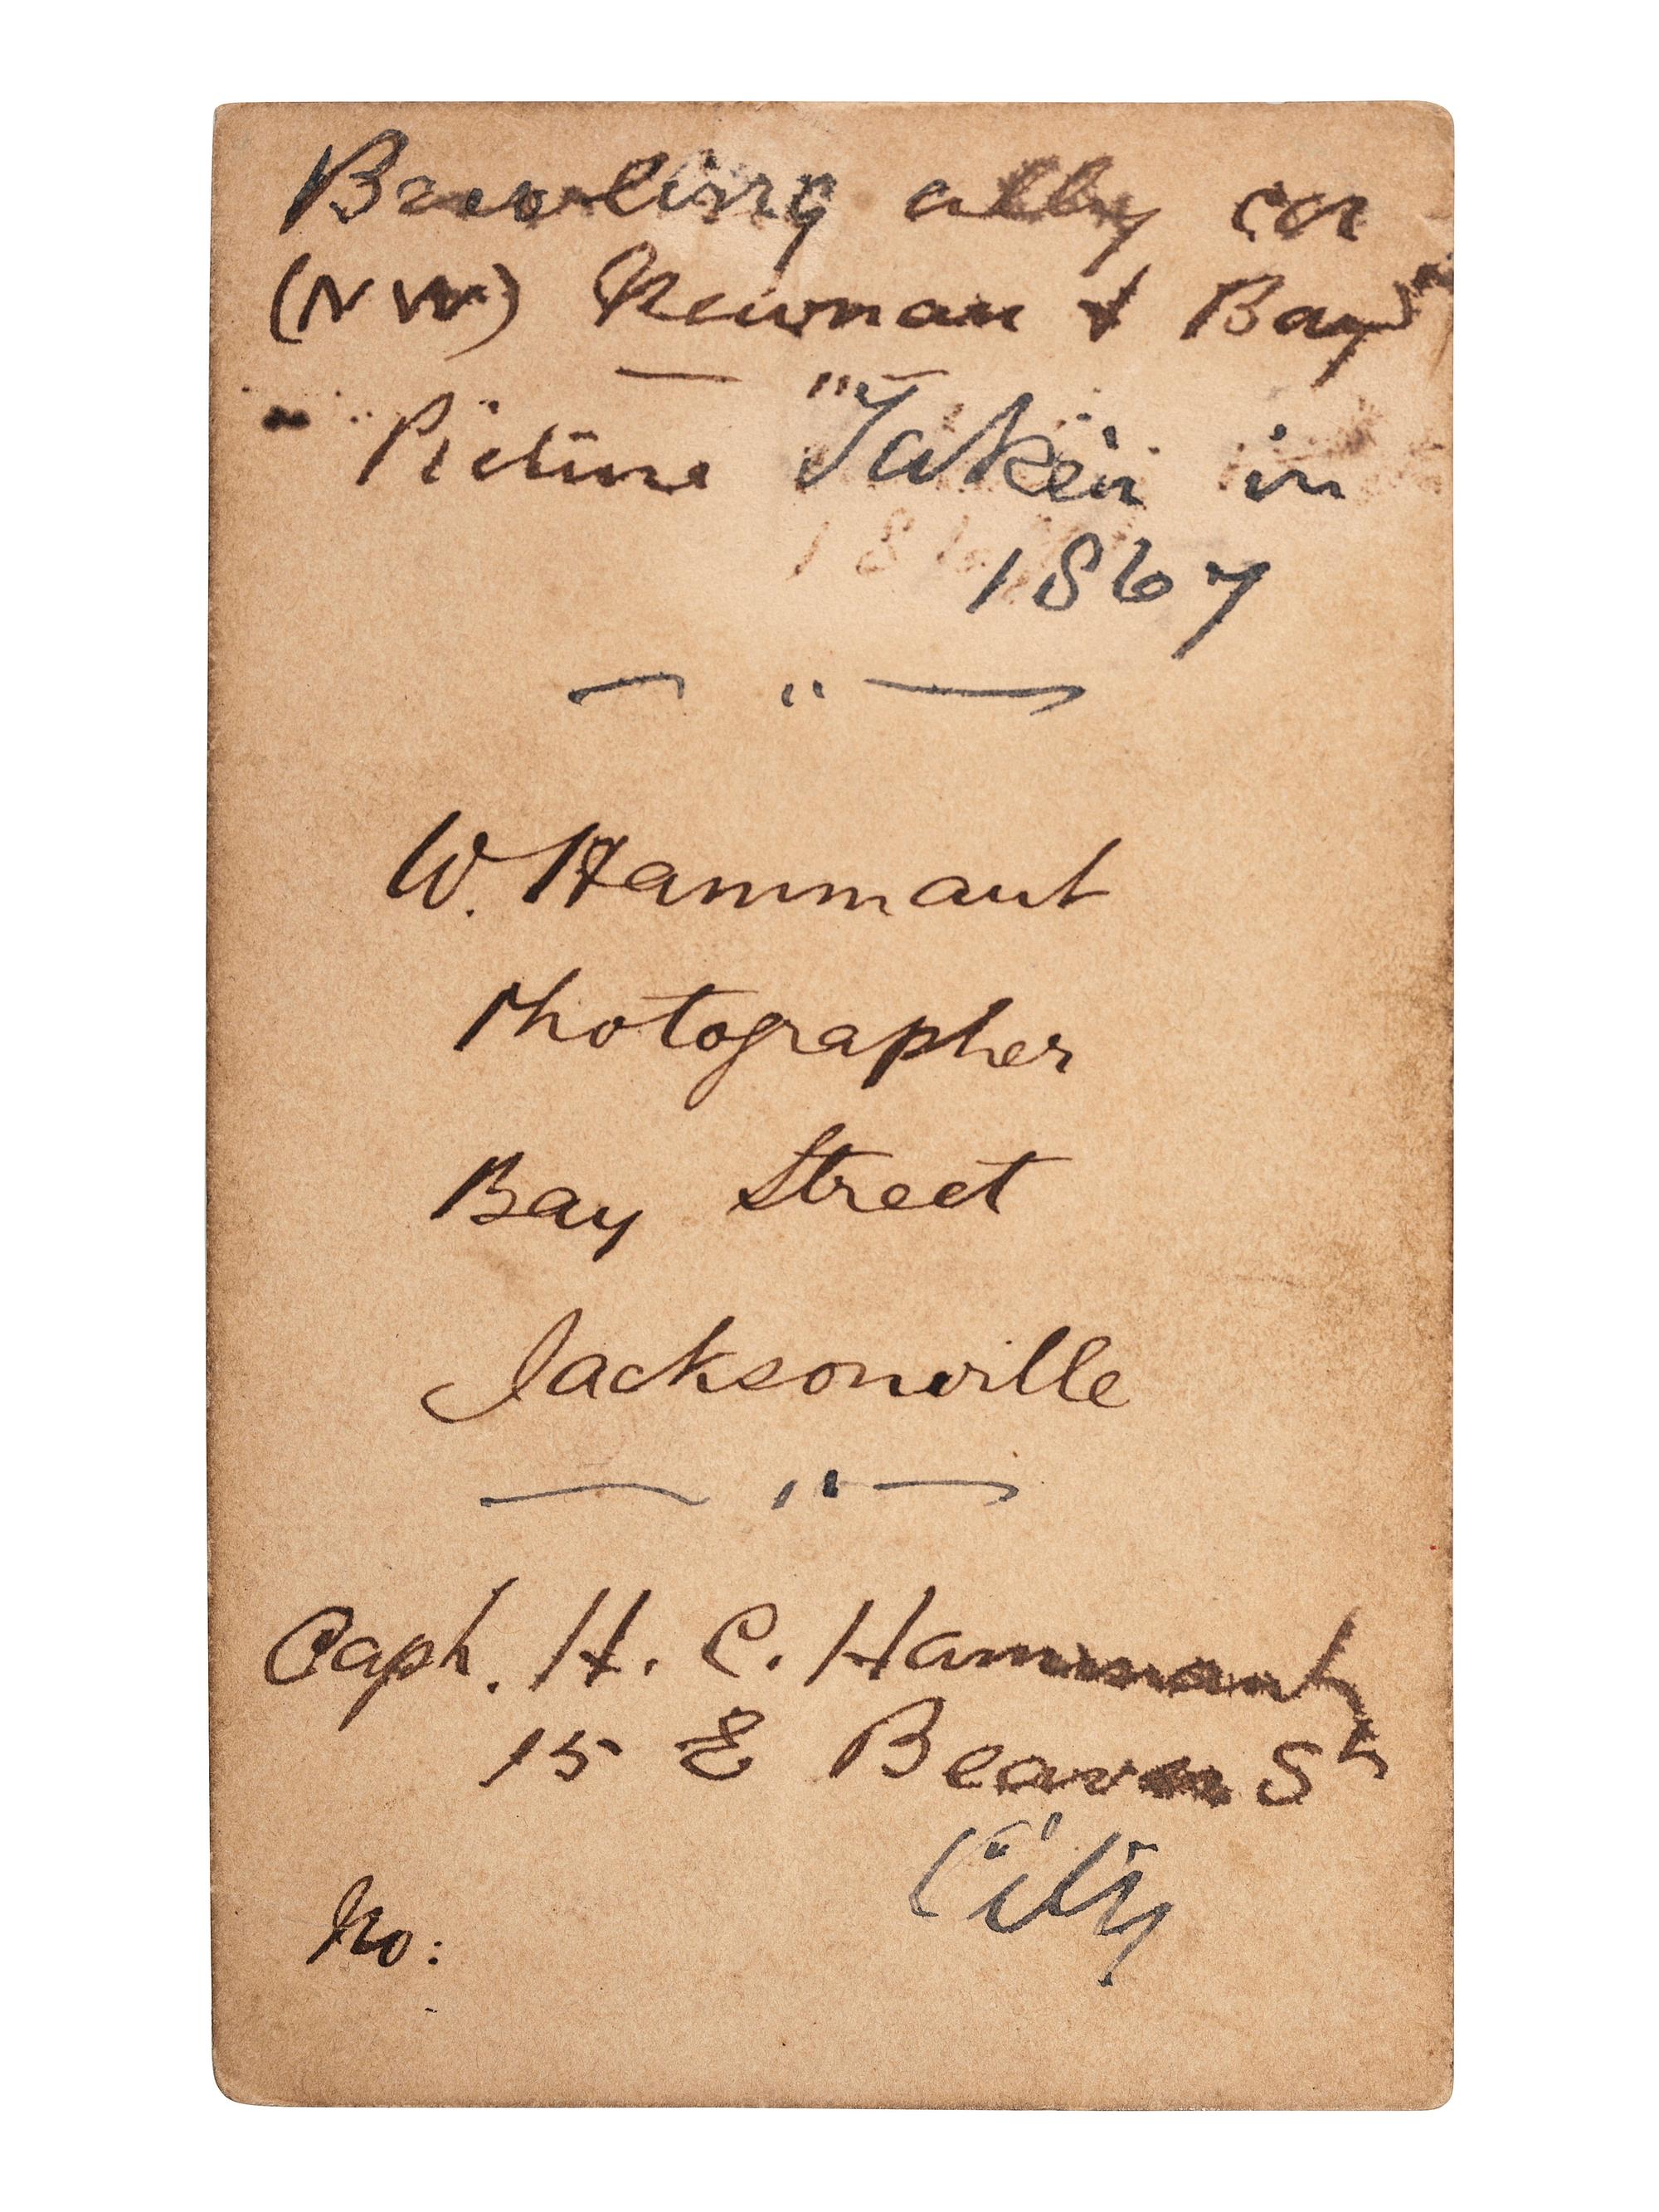 Bowling ally cor
(NW) Newnan & Bay
Picture Taken in
186
1867
W. Hammant
Photographer
Bay Street
Jacksonville
Capt. H. C. Hammant
15 E Beaver St
City
No: